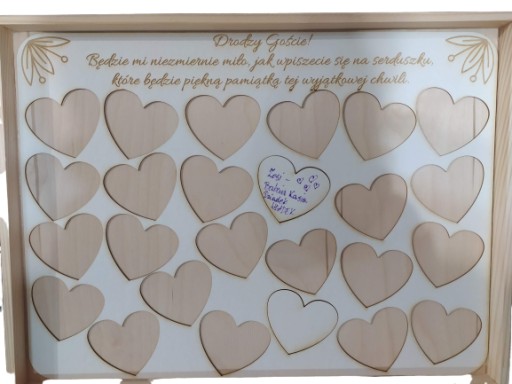 Drodzy Goście!
Będzie mi niezmiernie miło, jak wpiszecie się na serduszku,
które będzie piękną pamiątką tej wyjątkowej chwili.
Zosi -
Kasia